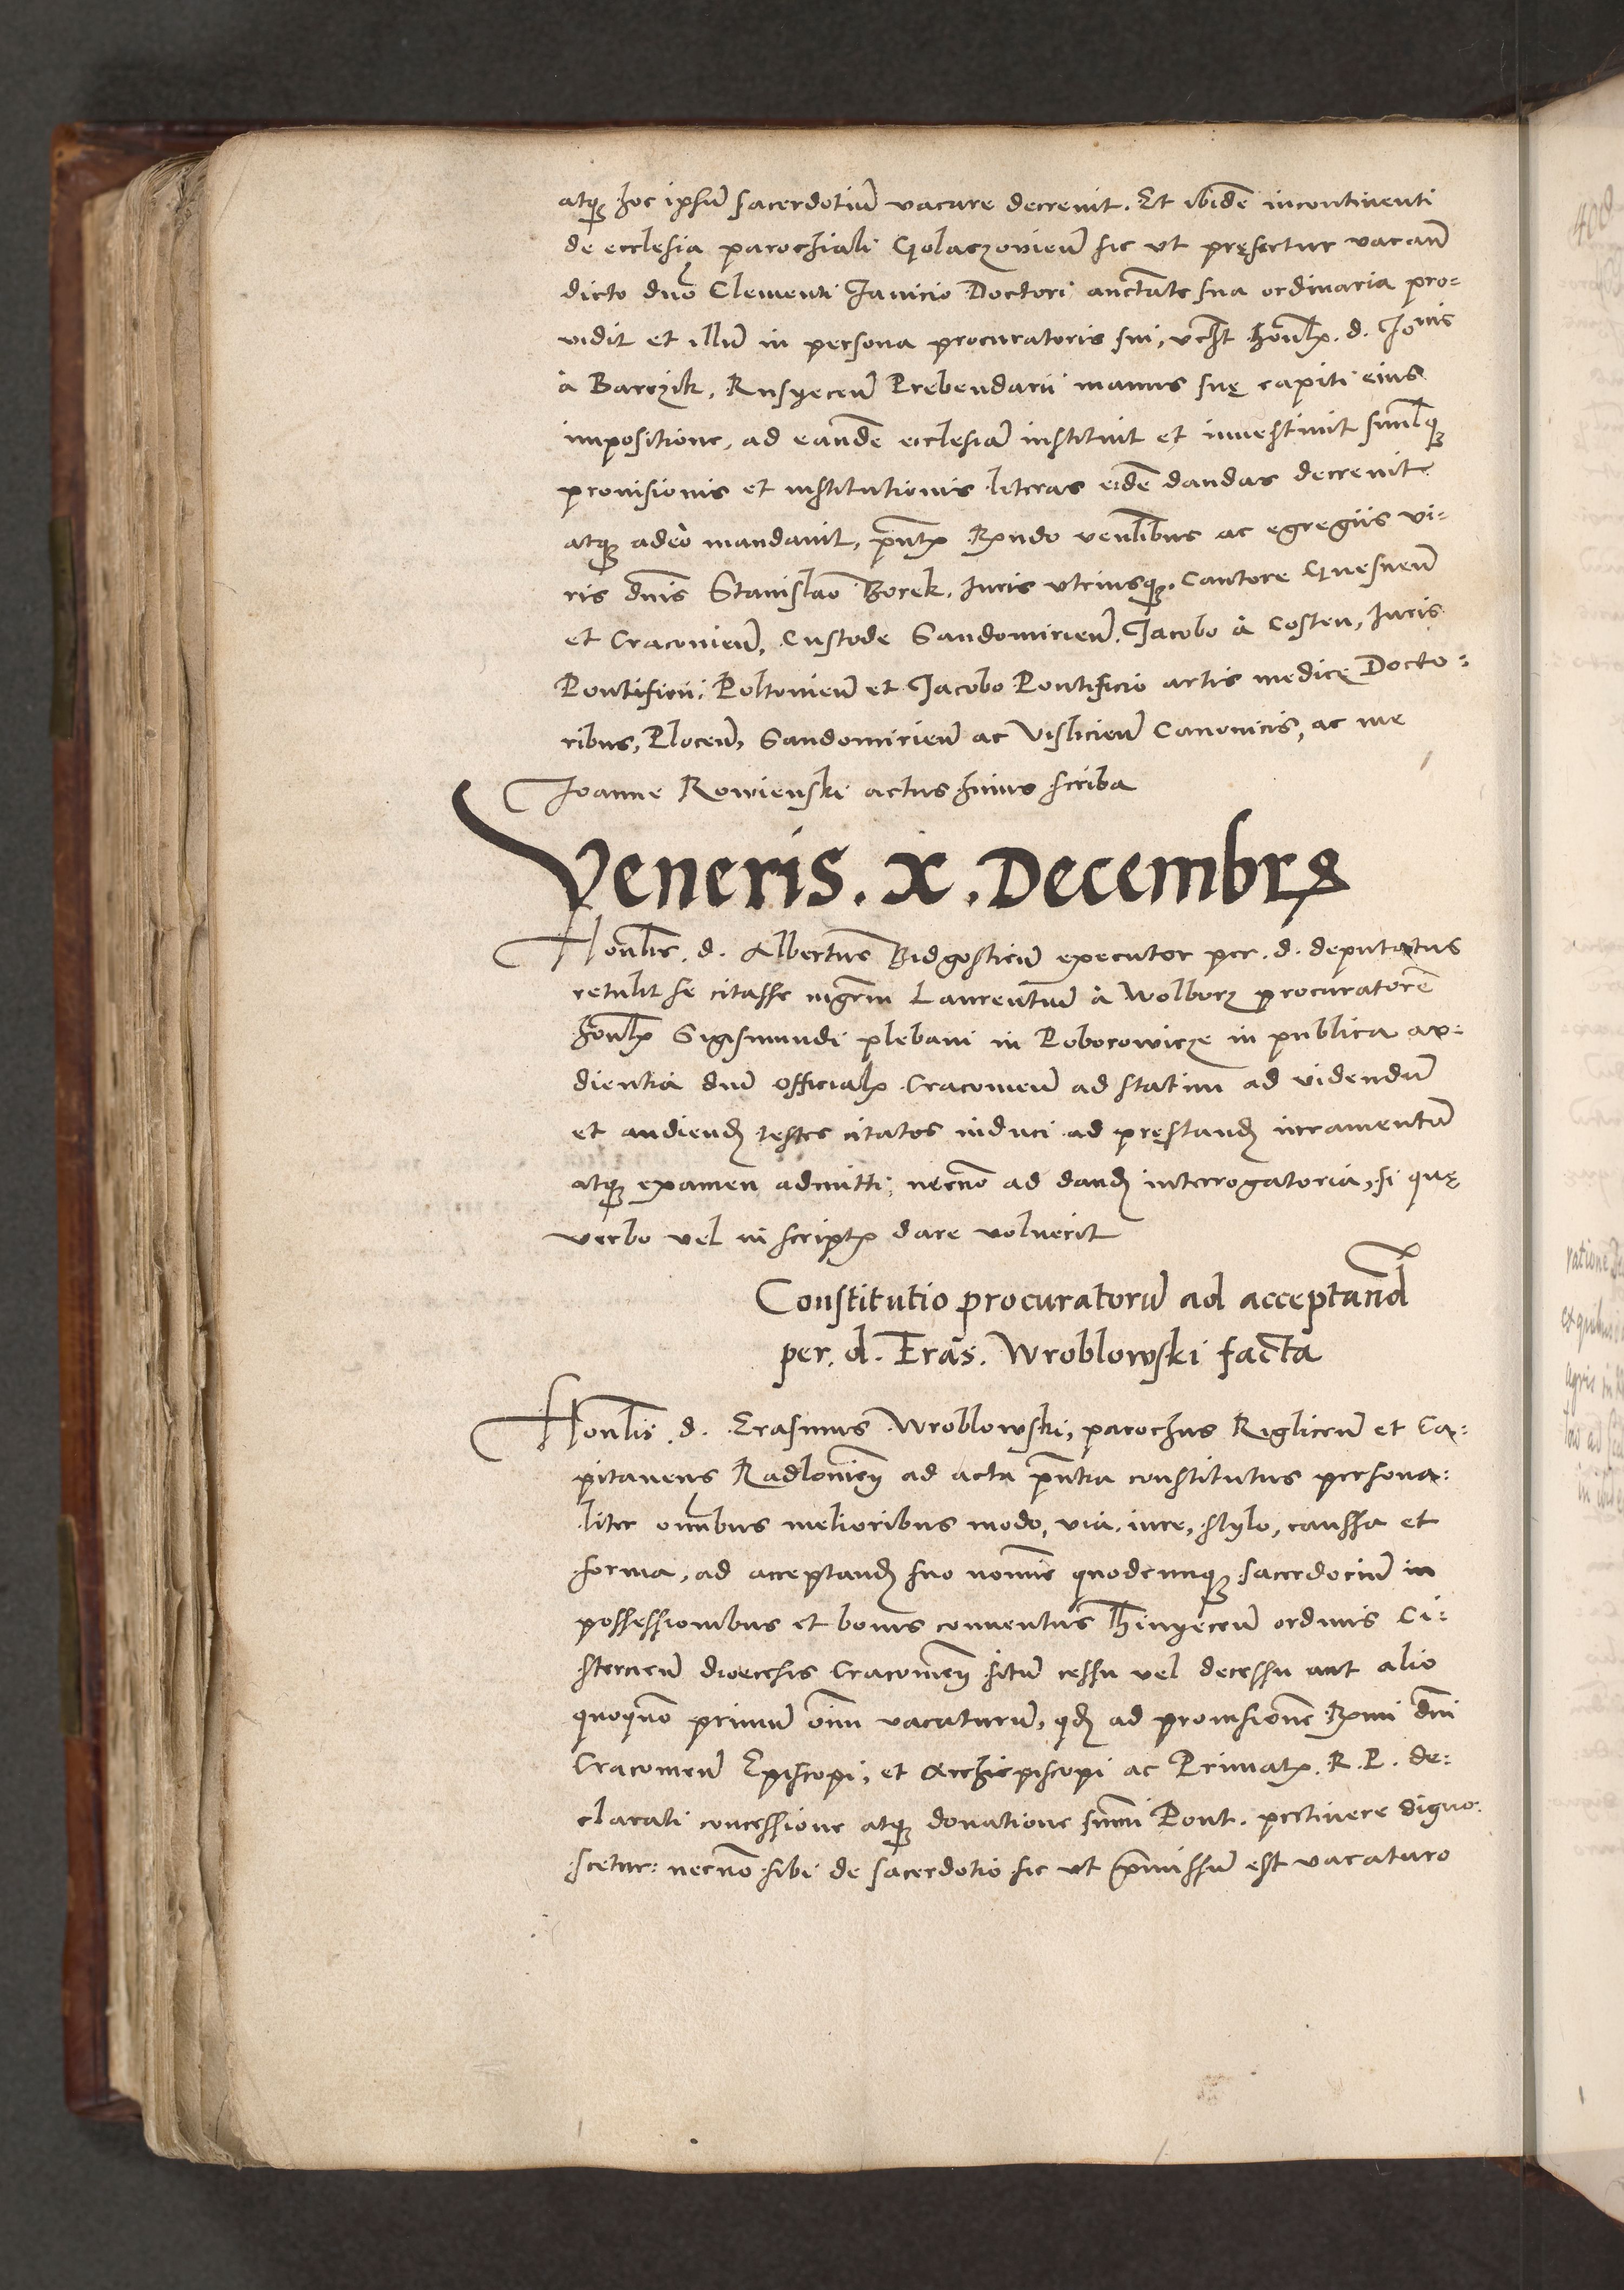 atq̃ hoc ipsũ sacerdotiũ vacare decrevit. Et ibidẽ incontinenti
de ecclesia parochiali Golaczovieñ sic ut pręfertur vacañ
dicto dño Clementi Janicio Doctori auctãte sua ordinaria pro-
vidit et illũ in persona procuratoris sui, vcz̃t hoñlis. d. Joñis
à Barczik, Rusyeceñ Prebendarii manus suę capiti eius
impositione, ad eandẽ ecclesiã instituit et investivit simĩlq̃
provisionis et institutionis literas eidẽ dandas decrevit
atq̃ adeò mandavit, p̃ntibus Rẽndo veñlibus ac egregiis vi-
ris dñis Stanislao Borek, Juris utriusq̃, Cantore Gnesneñ
et Cracovieñ, Custode Sandomirieñ, Jacobo à Costen, Juris
Pontificii; Poltovieñ et Jacobo Pontificio artis medicę Docto-
ribus, Ploceñ, Sandomirieñ ac Vislicieñ Canonicis, ac me
Joanne Rowienski actus huius scriba
Veneris . x . Decembris
Hoñlis. d. Albertus Bidgosticũ executor per. d. deputatus
retulit se citasse mgrm Laurentiũ à Wolborz procuratorẽ
hoñlis Sigismundi plebani in Poborowicze in publica au-
dientia dñi Officialis Cracovieñ ad statim ad videndũ
et audiend̃ testes citatos induci ad pręstand̃ iuramentũ
atq̃ examen admitti; necnõ ad dand̃ interrogatoria, si quę
verbo vel in scriptis dare voluerit
Constitutio procuratorũ ad acceptand̃
per. d. Eras. Wroblowski facta
Hoñlis. d. Erasmus Wroblowski, parochus Rigliceñ et Ca-
pitaneus Radlovieñ ad acta p̃ntia constitutus persona-
liter om̃ibus melioribus modo, via, iure, stylo, caussa et
forma, ad acceptand̃ suo noĩe quodcunq̃ sacerdociũ in
possessionibus et bonis conventus Thinyeceñ ordinis Ci-
stercieñ diocesis Cracovieñ situm cessu vel decessu aut alio
quoq̃mõ primũ oĩm vacaturũ, qd̃ ad provisionẽ Rx̃mi Dñi
Cracovieñ Episcopi, et Archiepiscopi ac Primatis. R. P. de-
clarati concessione atq̃ donatione sum̃i Pont. pertinere digno-
scetur: necnõ sibi de sacerdotio sic ut p̃missũ est vacaturo